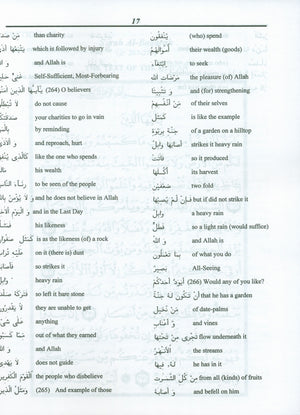 17
than charity
which is followed by injury يَتْبَعُهَا
and Allah is وَ اللهُ
Self-Sufficient, Most-Forbearing غَنِيٌّ
(264) O believers يٰٓاَيُّهَا الَّذِيْنَ
do not cause
your charities to go in vain
by reminding
and reproach, hurt
like the one who spends كَالَّذِيْ
his wealth
to be seen of the people رِئَآءَ النَّاسِ
and he does not believe in Allah
and in the Last Day وَ الْيَوْمِ
his likeness
is as the likeness (of) a rock كَمَثَلِ صَفْوَانٍ
on it (there is) dust
so strikes it
heavy rain وَابِلٌ
so left it bare stone فَتَرَكَهٗ
they are unable to get لَا يَقْدِرُوْنَ
anything عَلٰى شَيْءٍ
out of what they earned
and Allah وَ اللهُ
does not guide
the people who disbelieve الْقَوْمَ الْكٰفِرِيْنَ
(265) And example of those
يُنْفِقُوْنَ (who) spend
اَمْوَالَهُمُ their wealth (goods)
ابْتِغَآءَ to seek
مَرْضَاتِ اللهِ the pleasure (of) Allah
وَ تَثْبِيْتًا and (for) strengthening
مِّنْ اَنْفُسِهِمْ of their selves
كَمَثَلِ is like the example
جَنَّةٍ بِرَبْوَةٍ of a garden on a hilltop
اَصَابَهَا وَابِلٌ strikes it heavy rain
فَاٰتَتْ so it produced
اُكُلَهَا its harvest
ضِعْفَيْنِ two fold
فَاِنْ لَّمْ يُصِبْهَا but if did not strike it
وَابِلٌ a heavy rain
فَطَلٌّ so a light rain (would suffice)
وَ اللهُ and Allah is
بِمَا تَعْمَلُوْنَ of what you do
بَصِيْرٌ All-Seeing
اَيَوَدُّ اَحَدُكُمْ (266) Would any of you like?
اَنْ تَكُوْنَ لَهٗ جَنَّةٌ that he has a garden
مِّنْ نَّخِيْلٍ of date-palms
وَّ اَعْنَابٍ and vines
تَجْرِيْ مِنْ تَحْتِهَا flow underneath it
الْاَنْهٰرُ the streams
لَهٗ فِيْهَا he has in it
مِنْ كُلِّ الثَّمَرٰتِ from all (kinds) of fruits
وَ اَصَابَهُ and befell on him